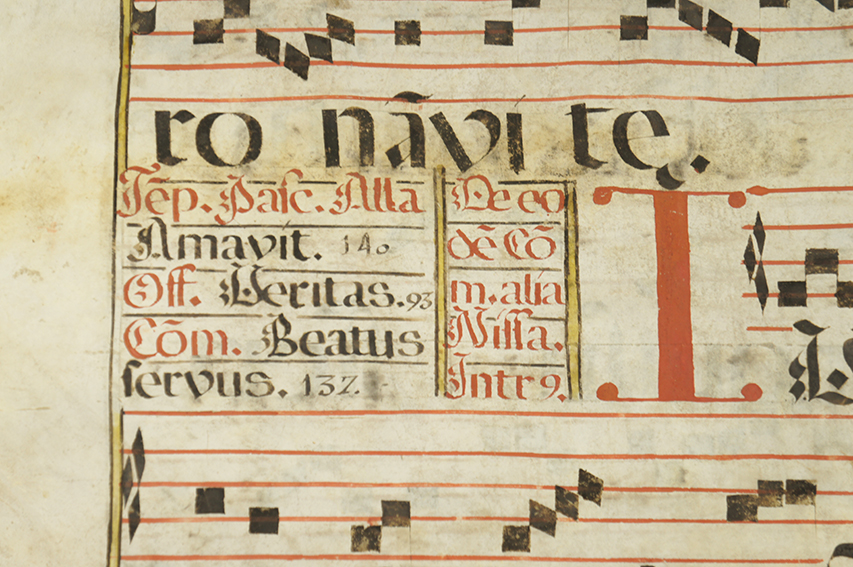 ro nāvi te.
Tēp. Pasc. Alla
Amavit. 140
Off. Veritas. 93
Cōm. Beatus
servus. 137.
De eo
dē Cō
m. alia
Missa.
Intr9.
I